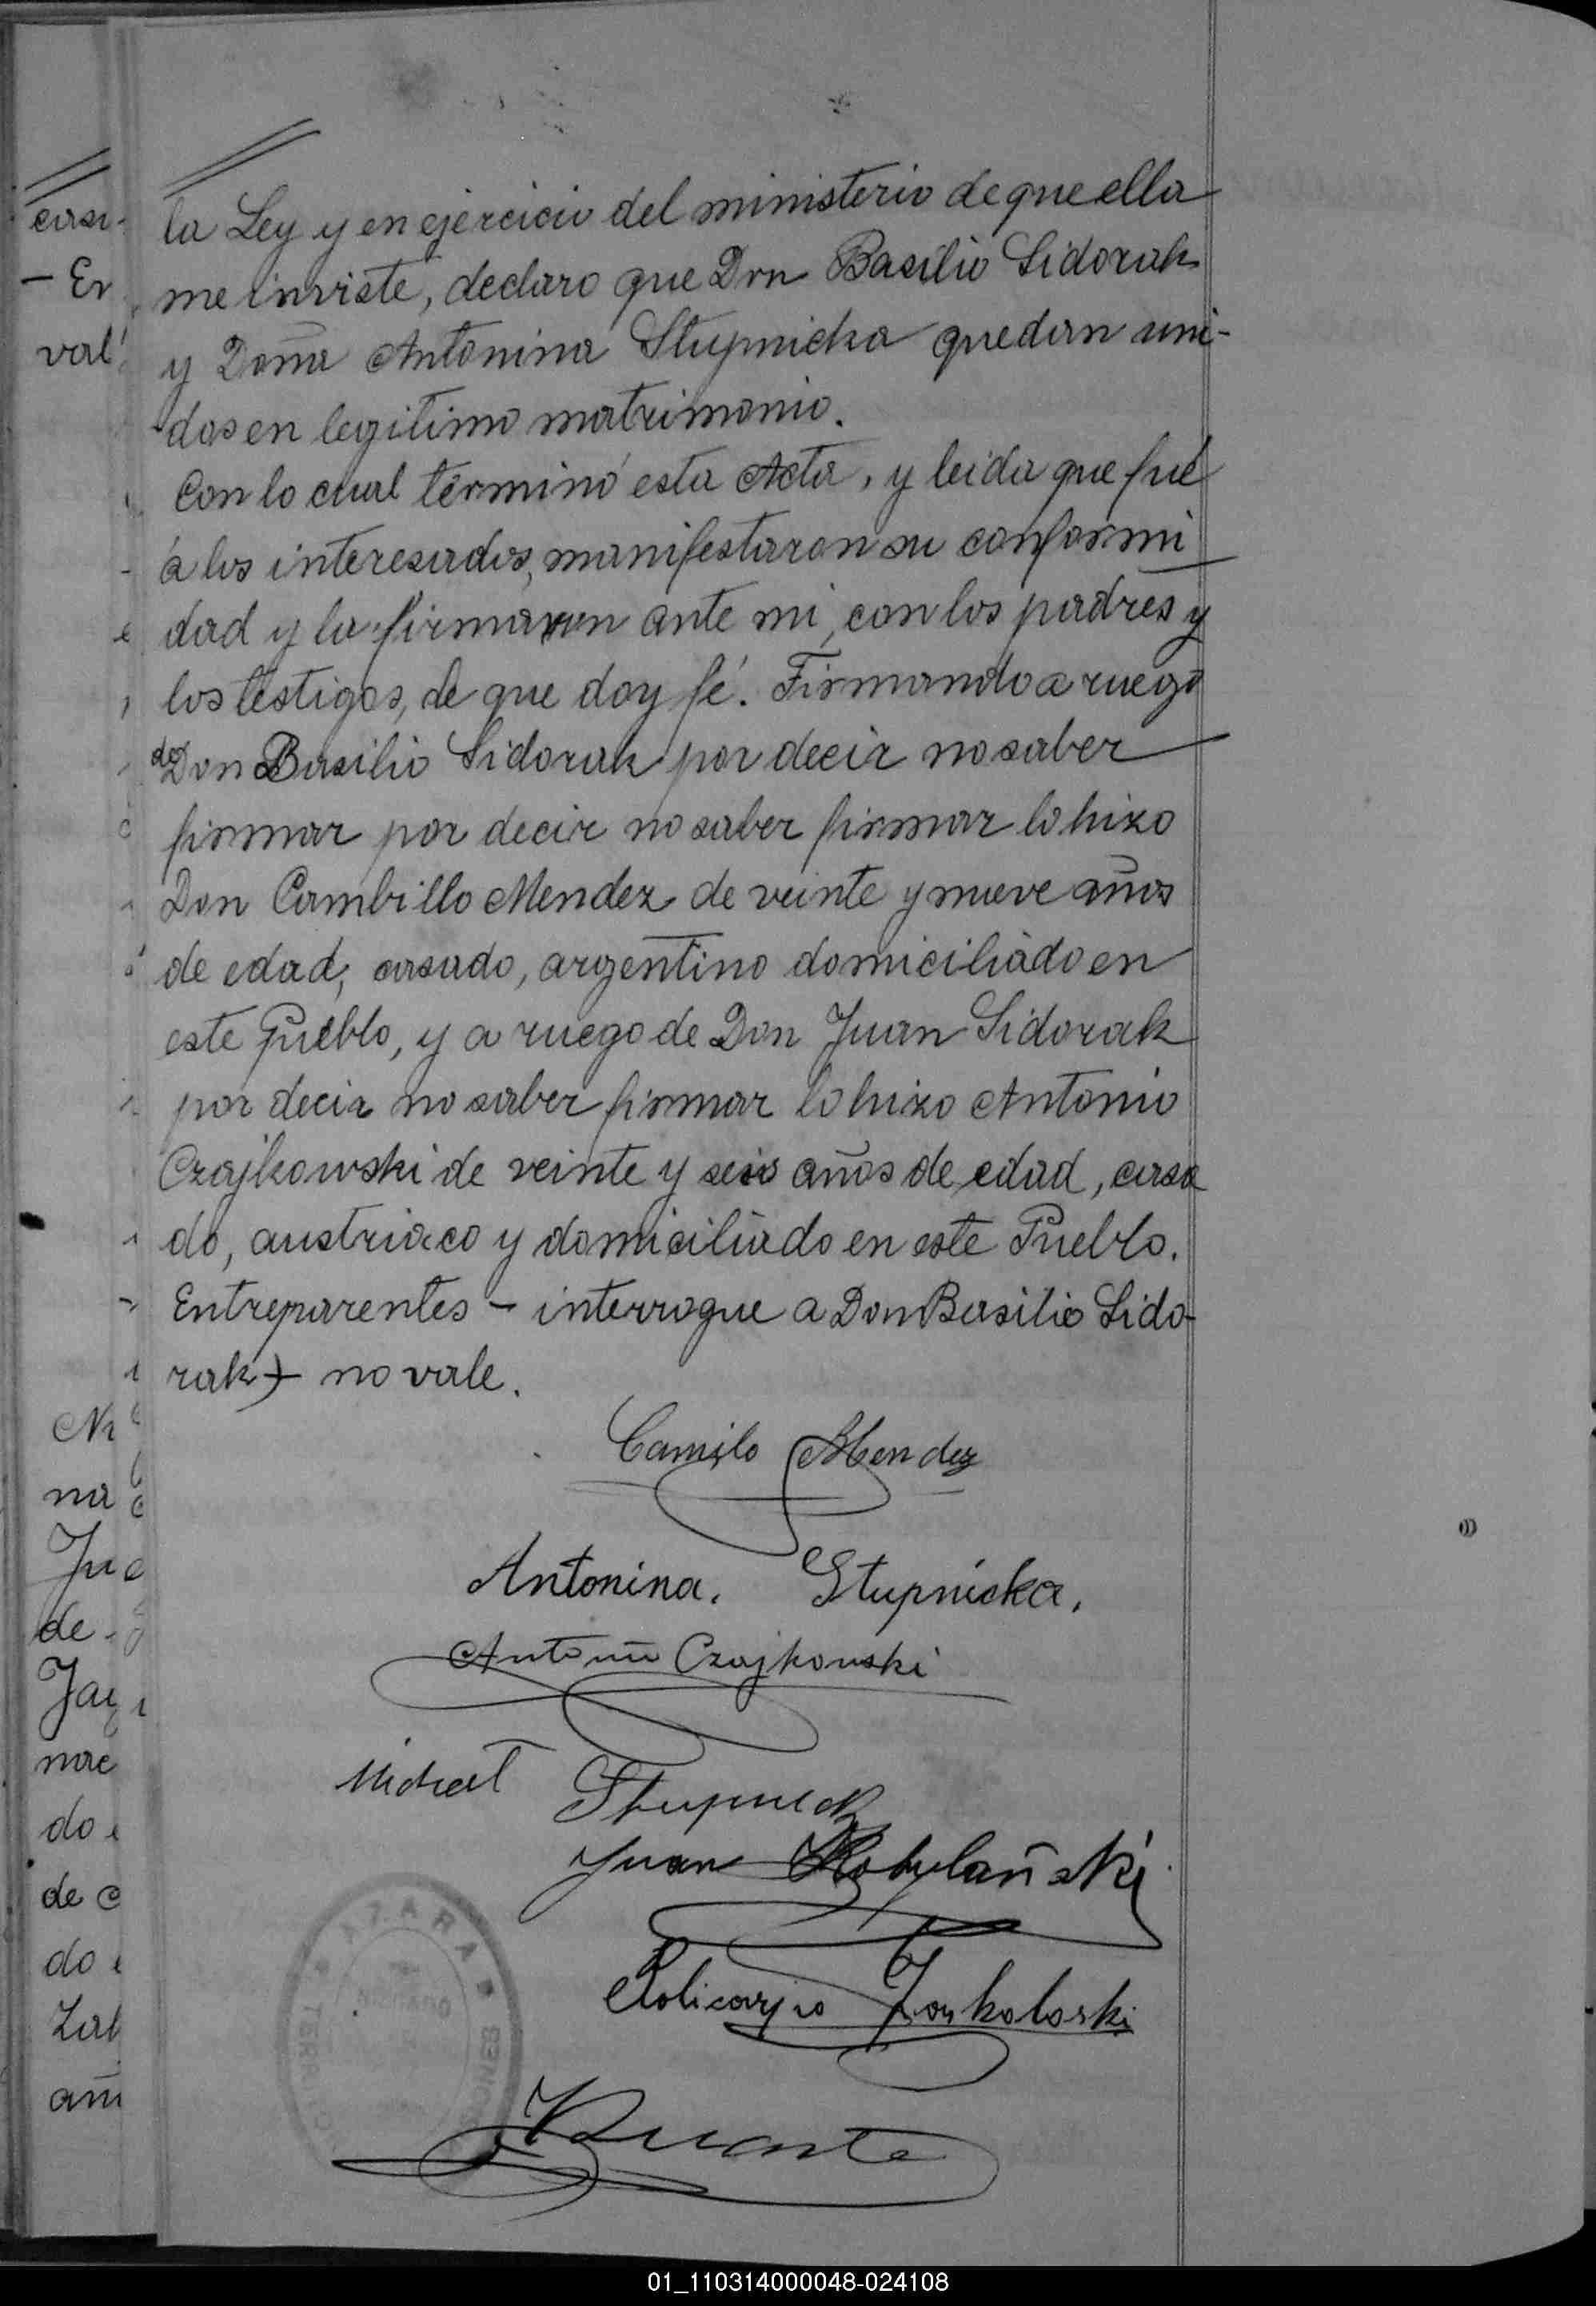 la Ley y en ejercicio del ministerio de que ella
me inviste, declaro que Don Basilio Sidorak
y Doña Antonina Stupnicka quedan uni-
dos en legitimo matrimonio.
Con lo cual terminó esta Acta, y leida que fué
á los interesados, manifestaron su conformi
dad y la firmaron ante mi, con los padres y
los testigos, de que doy fé. Firmando a ruego
de Don Basilio Sidorak por decir no saber
firmar por decir no saber firmar lo hizo
Don Cambillo Mendez de veinte y nueve años
de edad, casado, argentino domiciliado en
este Pueblo, y a ruego de Don Juan Sidorak
por decir no saber firmar lo hizo Antonio
Czajkowski de veinte y seis años de edad, casa
do, austriaco y domiciliado en este Pueblo.
Entreparentes – interrogue a Don Basilio Sido-
rak) – no vale.
Camilo Mendez
Antonina. Stupnicka.
Antonio Czajkowski
Michał Stupnick
Juan Kobylański
Policarpo
AZARA
01_110314000048-024108